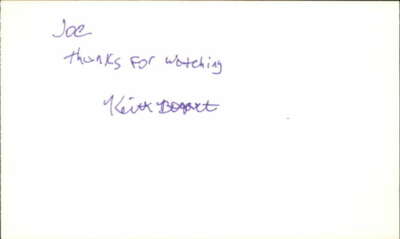 Joe
thanks For watching
Keith